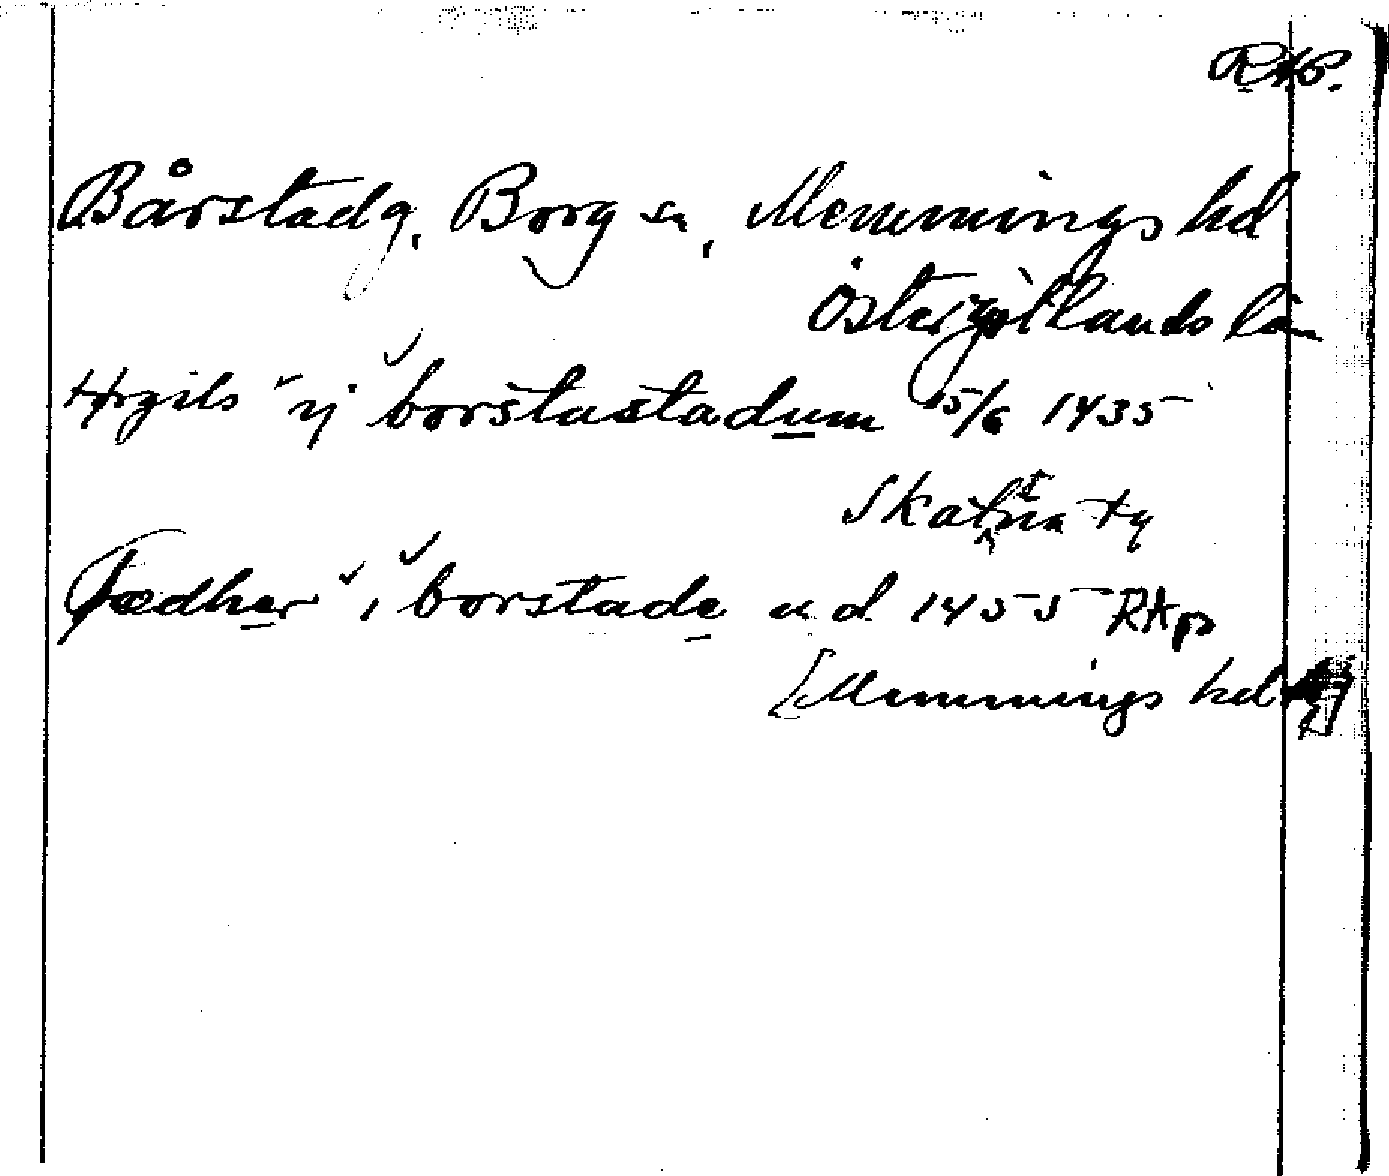 Bårstad g. Borg sn, Memmings hd
Östergötlands län
ij borstastadum 15/6 1435
Skatna ty
Fædher i borstade u d 1455 RAp
[Memmings hd